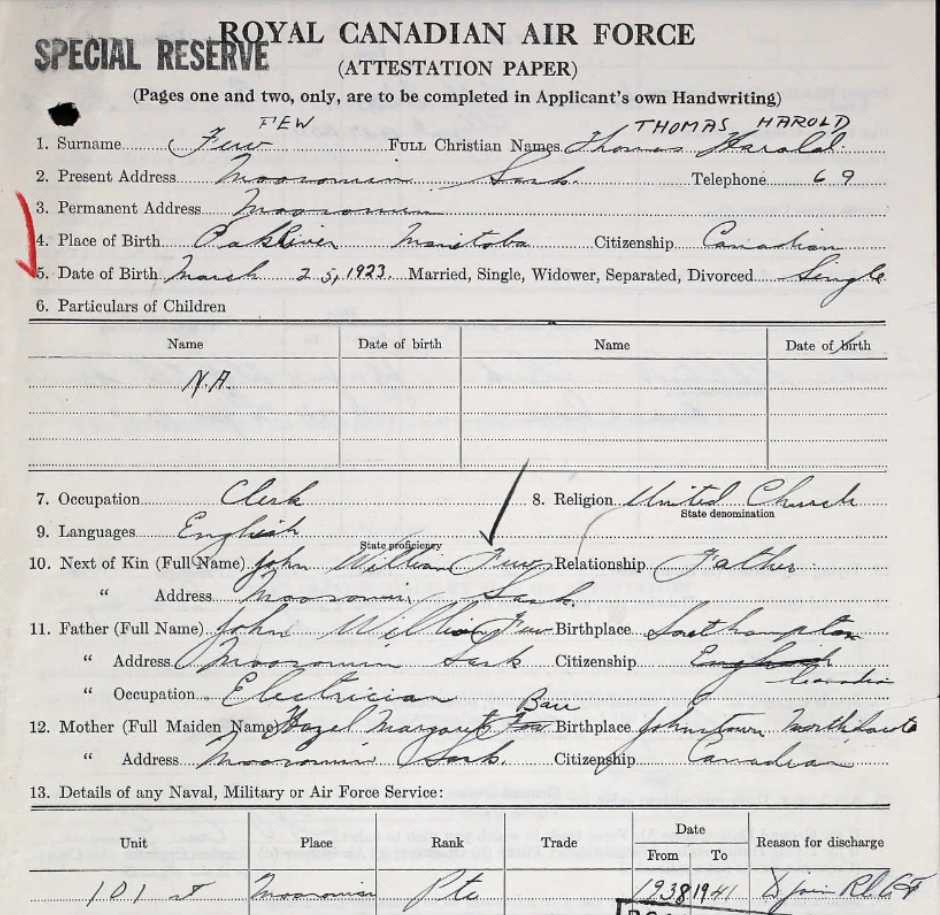 ROYAL CANADIAN AIR FORCE
SPECIAL RESERVE
(ATTESTATION PAPER)
(Pages one and two, only, are to be completed in Applicant's own Handwriting)
FEW THOMAS HAROLD
1. Surname Few FULL Christian Names Thomas Harold.
2. Present Address Moosomin Sask. Telephone 69
3. Permanent Address Moosomin
4. Place of Birth Oak River Manitoba Citizenship Canadian
5. Date of Birth March 25, 1923. Married, Single, Widower, Separated, Divorced Single
6. Particulars of Children
Name Date of birth Name Date of birth
N.A.
7. Occupation Clerk 8. Religion United Church
State denomination
9. Languages English
State proficiency
10. Next of Kin (Full Name) John William Few Relationship Father
" Address Moosomin, Sask.
11. Father (Full Name) John William Few Birthplace Southampton
" Address Moosomin Sask Citizenship English Canadian
" Occupation Electrician
12. Mother (Full Maiden Name) Hazel Margaret Few Birthplace Johnstown North
" Address Moosomin Sask. Citizenship Canadian
13. Details of any Naval, Military or Air Force Service:
Unit Place Rank Trade Date Reason for discharge
From To
101 Moosomin Pte 1938 1941 join R.C.A.F